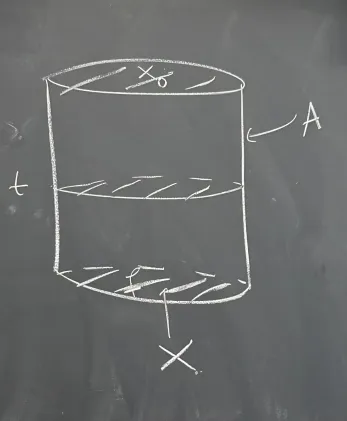 X₀
A
t
X